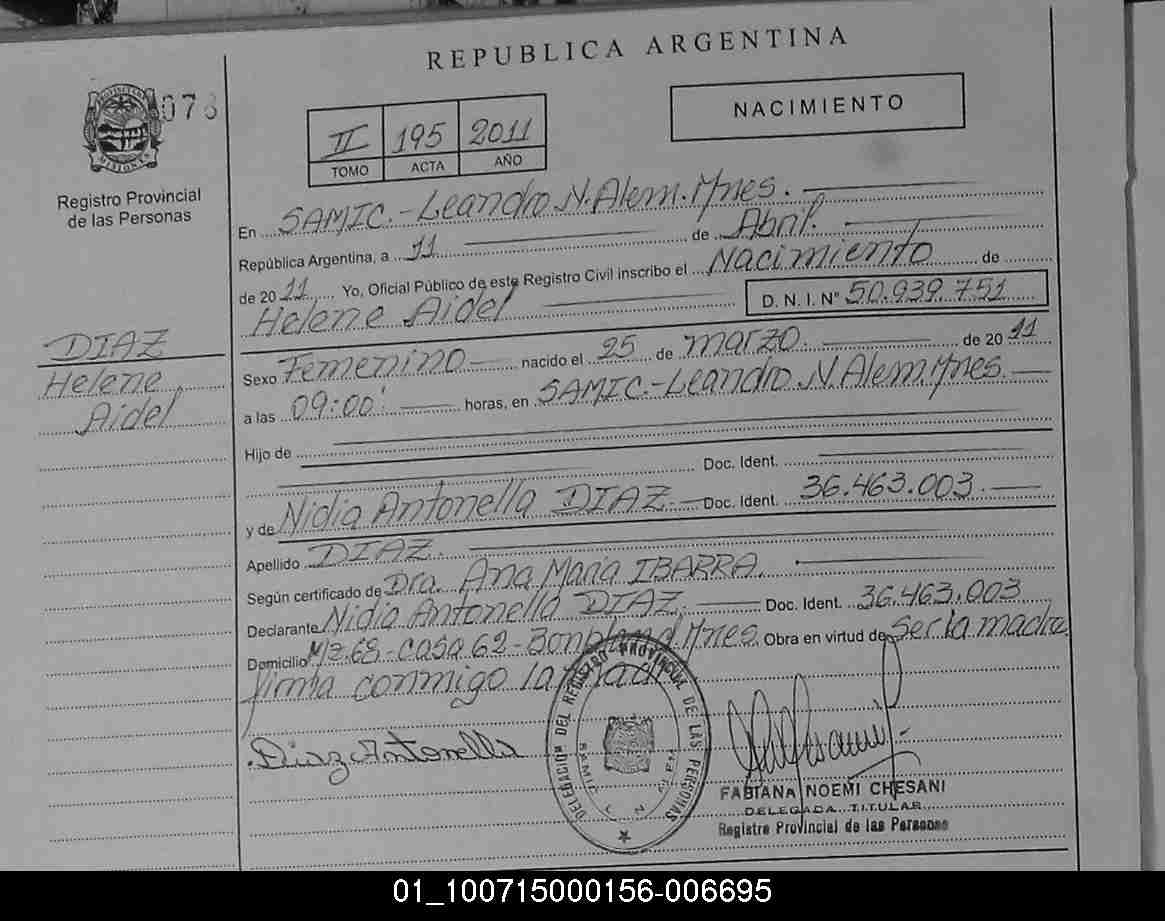 REPUBLICA ARGENTINA
073
NACIMIENTO
II 195 2011
TOMO ACTA AÑO
MISIONES
Registro Provincial
de las Personas
En SAMIC.-Leandro N. Alem. Mnes.
República Argentina, a 11 de Abril.
de 2011 Yo, Oficial Público de este Registro Civil inscribo el Nacimiento de
Helene Aidel D. N. I. Nº 50.939.751
DIAZ
Helene
Aidel
Sexo Femenino nacido el 25 de marzo. de 2011
a las 09:00' horas, en SAMIC.-Leandro N. Alem. Mnes.
Hijo de
Doc. Ident.
y de Nidia Antonella DIAZ. Doc. Ident. 36.463.003.
Apellido DIAZ.
Según certificado de Dra. Ana Maria IBARRA.
Declarante Nidia Antonella DIAZ. Doc. Ident. 36.463.003
Domicilio Mz.68-casa 62-Bonpland Mnes. Obra en virtud de ser la madre.
firma conmigo la madre
Diaz Antonella
DELEGACION DEL REGISTRO PROVINCIAL DE LAS PERSONAS
FABIANA NOEMI CHESANI
DELEGADA TITULAR
Registro Provincial de las Personas
01_100715000156-006695